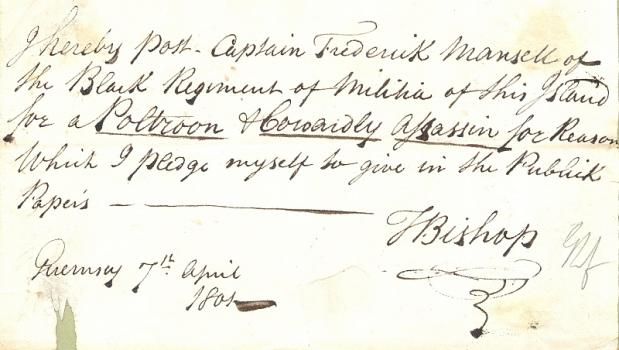 I hereby post - Captain Frederick Mansell of
the Black Regiment of Militia of this Island
for a Poltroon & Cowardly Assassin for Reason
Which I pledge myself to give in the Publick
Papers —
TBishop
Guernsay 7th April
1801